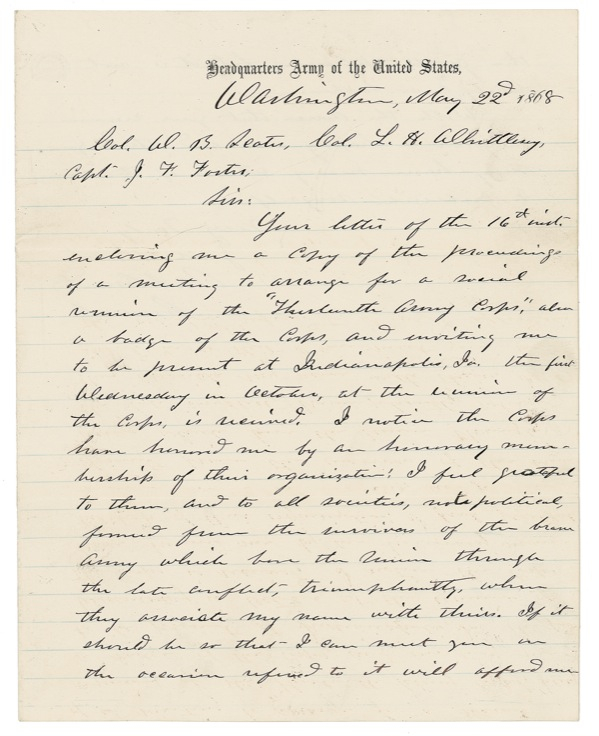 Headquarters Army of the United States,
Washington, May 22d 1868
Col. W. B. Scates, Col. L. H. Whittlesey,
Capt. J. F. Foster,
Sirs:
Your letter of the 16th inst.
enclosing me a copy of the proceedings
of a meeting to arrange for a social
reunion of the "Thirteenth Army Corps", also
a badge of the Corps, and inviting me
to be present at Indianapolis, Ia. the first
Wednesday in October, at the reunion of
the Corps, is received. I notice the Corps
have honored me by an honorary mem-
bership of their organization! I feel grateful
to them, and to all societies, not political,
formed from the survivors of the brave
Army which bore the Union through
the late conflict, triumphantly, when
they associate my name with theirs. If it
should be so that I can meet you on
the occasion refered to it will afford me